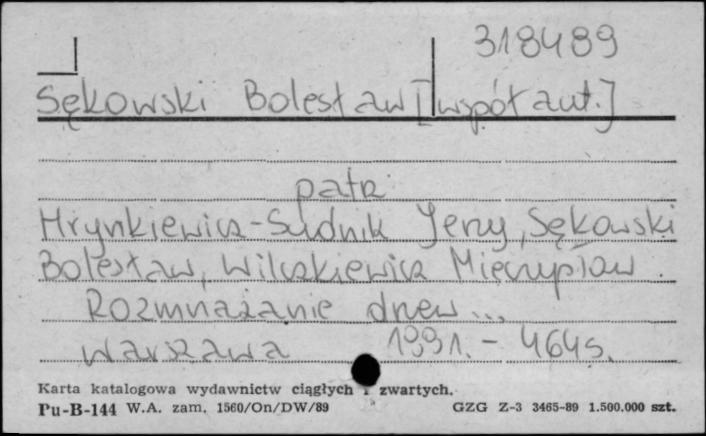 318489
Sękowski Bolesław [współaut.]
patrz
Hrynkiewicz-Sudnik Jerzy, Sękowski
Bolesław, Wilczkiewicz Mieczysław.
Rozmnażanie drzew...
Warszawa 1991. - 464 s.
Karta katalogowa wydawnictw ciągłych i zwartych.
Pu-B-144 W.A. zam. 1560/On/DW/89 GZG Z-3 3465-89 1.500.000 szt.